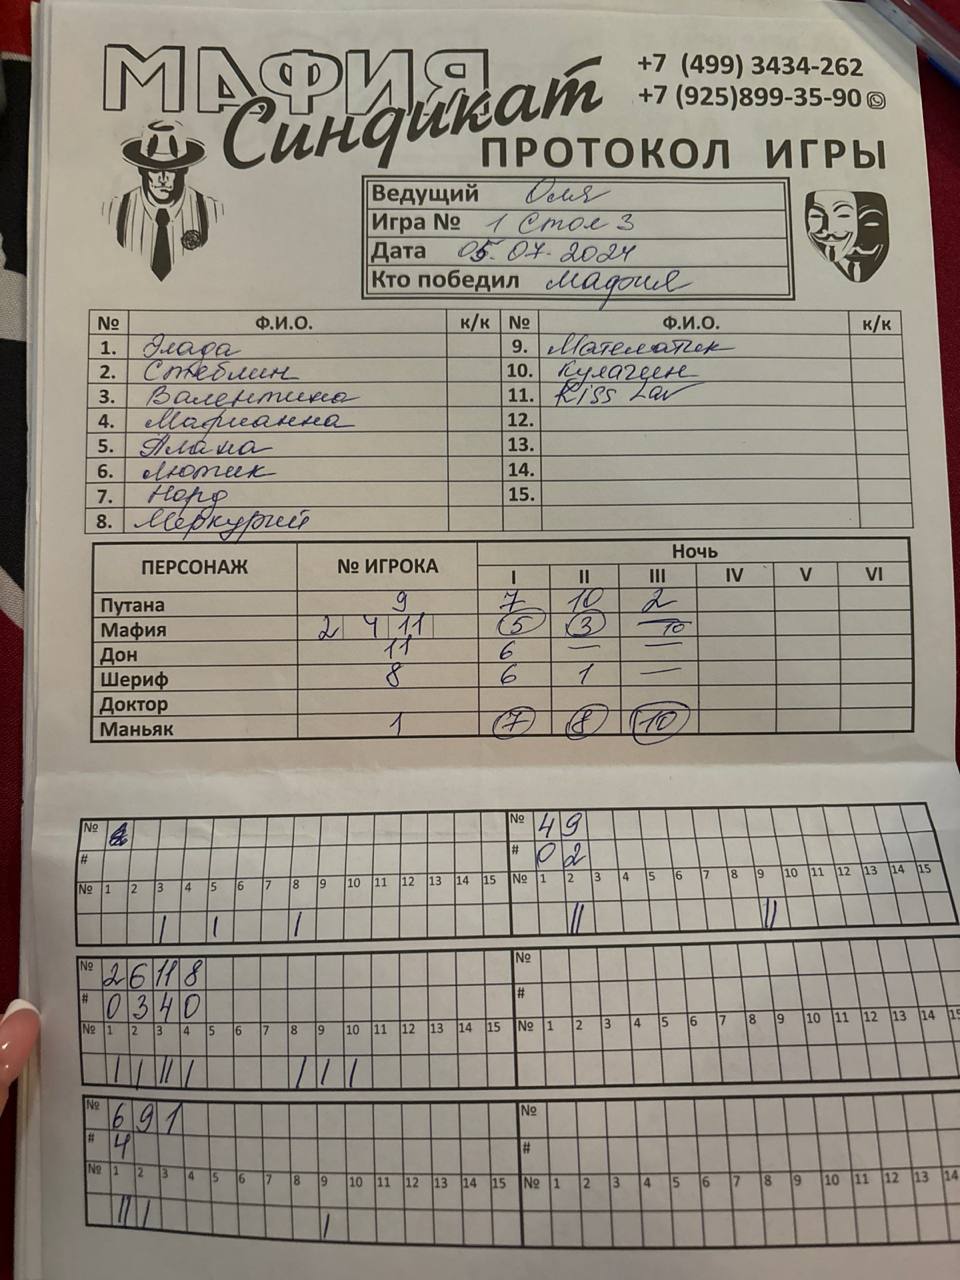 МАФИЯ
Синдикат
+7 (499) 3434-262
+7 (925)899-35-90
ПРОТОКОЛ ИГРЫ
Ведущий Оля
Игра № 1 Стол 3
Дата 05.07.2024
Кто победил Мафия
№ Ф.И.О. к/к № Ф.И.О. к/к
1. Элада 9. Математик
2. Стеблин 10. Кулагин
3. Валентина 11. Kiss Lav
4. Марианна 12.
5. Алана 13.
6. Лютик 14.
7. Норд 15.
8. Меркурий
ПЕРСОНАЖ № ИГРОКА Ночь
I II III IV V VI
Путана 9 7 10 2
Мафия 2 4 11 5 3 — 10
Дон 11 6 — —
Шериф 8 6 1 —
Доктор
Маньяк 1 7 8 10
№ № 4 9
# # 0 2
№ 1 2 3 4 5 6 7 8 9 10 11 12 13 14 15 № 1 2 3 4 5 6 7 8 9 10 11 12 13 14 15
| | | || ||
№ 2 6 11 8 №
# 0 3 4 0 #
№ 1 2 3 4 5 6 7 8 9 10 11 12 13 14 15 № 1 2 3 4 5 6 7 8 9 10 11 12 13 14 15
| | || | | | |
№ 6 9 1 №
# 4 #
№ 1 2 3 4 5 6 7 8 9 10 11 12 13 14 15 № 1 2 3 4 5 6 7 8 9 10 11 12 13 14
|| | |